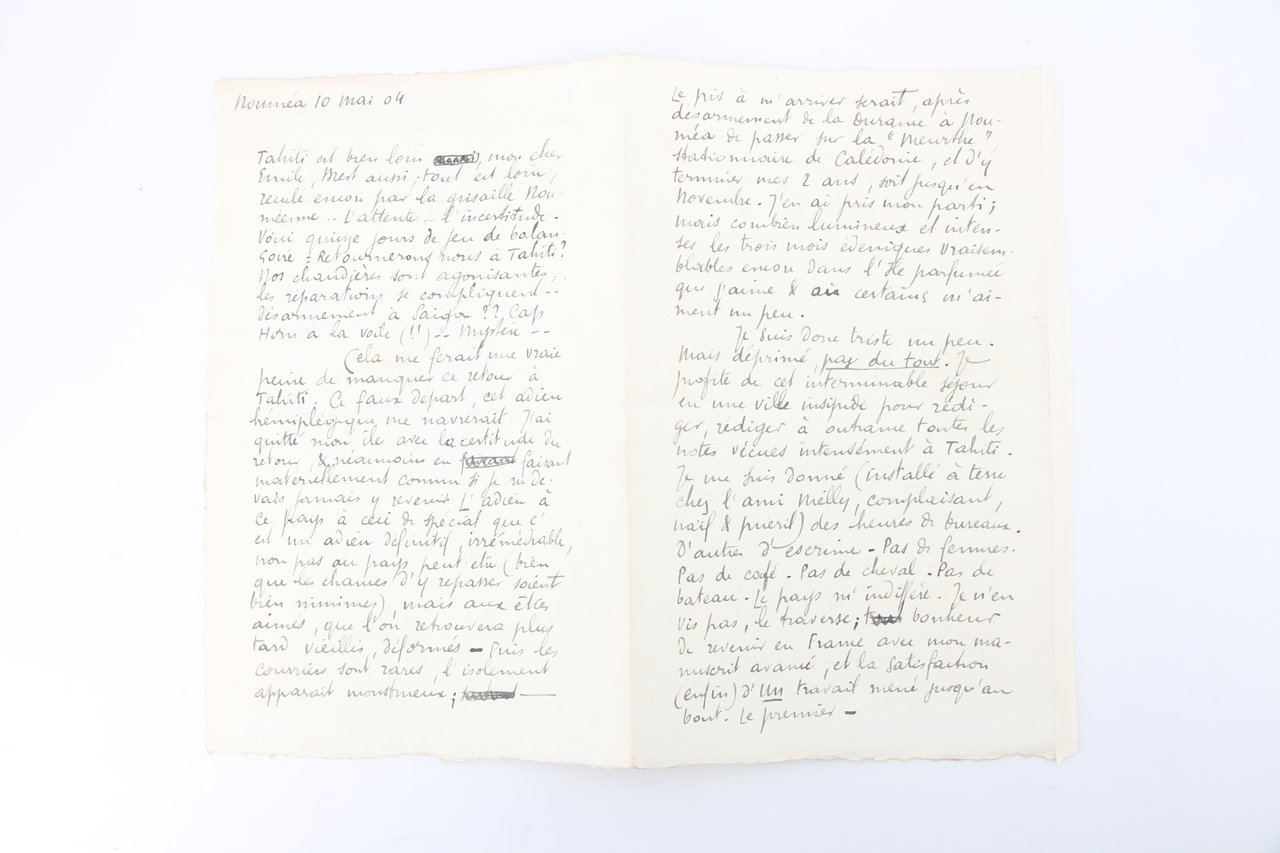 Nouméa 10 Mai 04
Tahiti est bien loin, mon cher
Emile, Brest aussi; tout est loin,
reculé encore par la grisaille Nou-
méenne -- L'attente -- l'incertitude.
Voici quinze jours de jeu de balan-
çoire : Retournerons nous à Tahiti?
Nos chaudières sont agonisantes,
les réparations se compliquent --
désarmement à Saïgon ?? Cap
Horn à la voile (!!) -- Mystère --
Cela me ferait une vraie
peine de manquer ce retour à
Tahiti. Ce faux départ, cet adieu
hémiplégique, me navrerait. J'ai
quitté mon île avec la certitude du
retour, & néanmoins en faisant
maternellement comme si je ne de-
vais jamais y revenir. L'adieu à
ce pays à ceci de spécial que c'
est un adieu définitif, irrémédiable,
non pas au pays peut être (bien
que les chances d'y repasser soient
bien minimes), mais aux êtres
aimés, que l'on retrouvera plus
tard vieillis, déformés - Puis les
courriers sont rares, l'isolement
apparait monstrueux;
Le pis à m'arriver serait, après
désarmement de la Durance à Nou-
méa de passer sur la "Meurthe"
stationnaire de Calédonie, et d'y
terminer mes 2 ans, soit jusqu'en
Novembre. J'en ai pris mon parti;
mais combien lumineux et inten-
ses les trois mois édeniques vraisem-
blables encore dans l'Ile parfumée
que j'aime & où certains m'ai-
ment un peu.
Je suis donc triste un peu.
Mais déprimé, pas du tout. Je
profite de cet interminable séjour
en une ville insipide pour rédi-
ger, rédiger à outrance toutes les
notes vécues intensément à Tahiti.
Je me suis donné (installé à terre
chez l'ami Mielly, complaisant,
naïf & puéril) des heures de bureaux.
D'autres d'escrime - Pas de femmes.
Pas de café - Pas de cheval - Pas de
bateau - Le pays m'indiffère. Je n'en
vis pas, le traverse; bonheur
de revenir en France avec mon ma-
nuscrit avancé, et la satisfaction
(enfin) d'un travail mené jusqu'au
bout. Le premier -